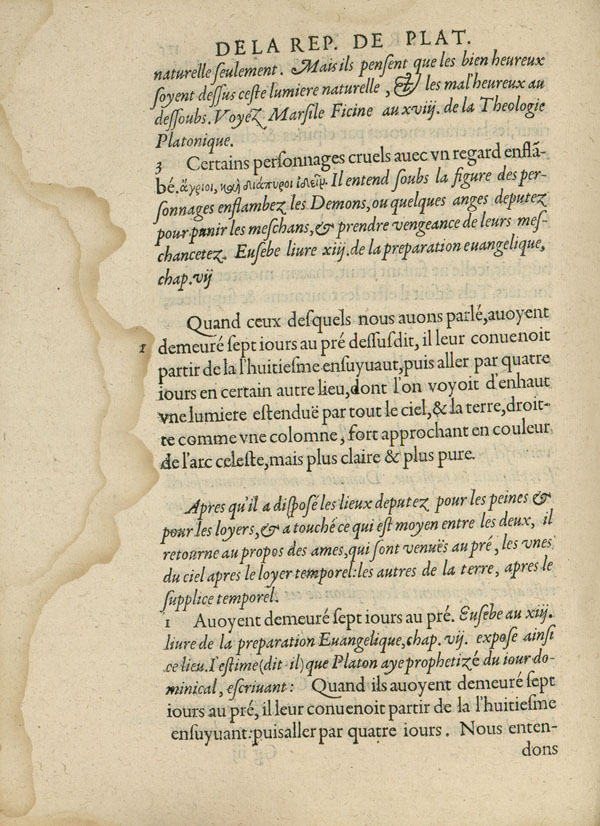 DE LA REP. DE PLAT.
naturelle seulement. Mais ils pensent que les bien heureux
soyent dessus ceste lumiere naturelle, & les mal'heureux au
dessoubs. Voyéz Marsile Ficine au xviij. de la Theologie
Platonique.
3 Certains personnages cruels auec vn regard enflã-
bé. ἄγριοι, καὶ διάπυροι ἰδεῖν. Il entend soubs la figure des per-
sonnages enflambez les Demons, ou quelques anges deputez
pour punir les meschans, & prendre vengeance de leurs mes-
chancetez. Eusebe liure xiij. de la preparation euangelique,
chap. vij
Quand ceux desquels nous auons parlé, auoyent
1 demeuré sept iours au pré dessusdit, il leur conuenoit
partir de la l'huitiesme ensuyuaut, puis aller par quatre
iours en certain autre lieu, dont l'on voyoit d'enhaut
vne lumiere estenduë par tout le ciel, & la terre, droit-
te comme vne colomne, fort approchant en couleur
de l'arc celeste, mais plus claire & plus pure.
Apres qu'il a disposé les lieux deputez pour les peines &
pour les loyers, & a touché ce qui est moyen entre les deux, il
retourne au propos des ames, qui sont venuës au pré, les vnes
du ciel apres le loyer temporel: les autres de la terre, apres le
supplice temporel.
1 Auoyent demeuré sept iours au pré. Eusebe au xiij.
liure de la preparation Euangelique, chap. vij. expose ainsi
ce lieu. I'estime (dit-il) que Platon aye prophetizé du iour do-
minical, escriuant: Quand ils auoyent demeuré sept
iours au pré, il leur conuenoit partir de la l'huitiesme
ensuyuant: puis aller par quatre iours. Nous enten-
dons